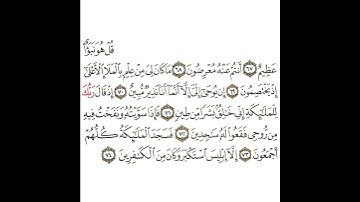 قُلْ هُوَ نَبَؤٌا۟
عَظِيمٌ ٦٧ أَنتُمْ عَنْهُ مُعْرِضُونَ ٦٨ مَا كَانَ لِىَ مِنْ عِلْمٍۭ بِٱلْمَلَإِ ٱلْأَعْلَىٰٓ
إِذْ يَخْتَصِمُونَ ٦٩ إِن يُوحَىٰٓ إِلَىَّ إِلَّآ أَنَّمَآ أَنَا۠ نَذِيرٌ مُّبِينٌ ٧٠ إِذْ قَالَ رَبُّكَ
لِلْمَلَٰٓئِكَةِ إِنِّى خَٰلِقٌۢ بَشَرًا مِّن طِينٍ ٧١ فَإِذَا سَوَّيْتُهُۥ وَنَفَخْتُ فِيهِ
مِن رُّوحِى فَقَعُوا۟ لَهُۥ سَٰجِدِينَ ٧٢ فَسَجَدَ ٱلْمَلَٰٓئِكَةُ كُلُّهُمْ
أَجْمَعُونَ ٧٣ إِلَّآ إِبْلِيسَ ٱسْتَكْبَرَ وَكَانَ مِنَ ٱلْكَٰفِرِينَ ٧٤